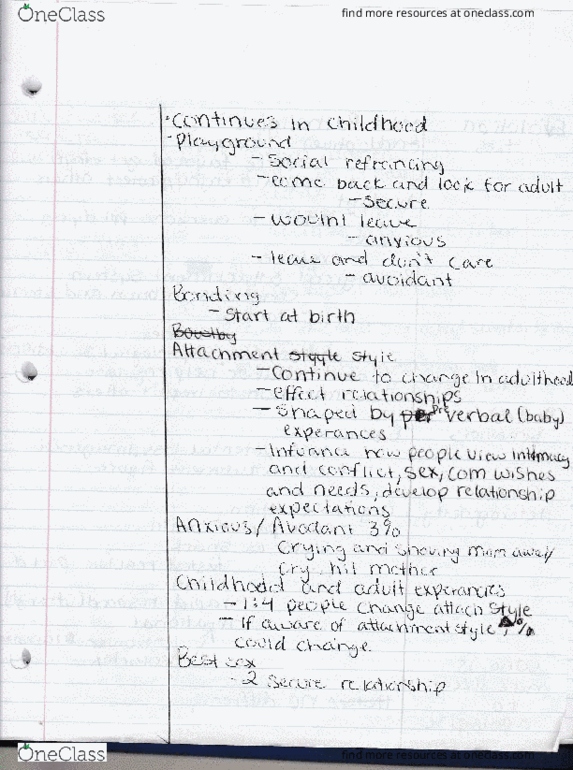 OneClass
find more resources at oneclass.com
·Continues in childhood
-Playground
-Social refrancing
-come back and look for adult
-Secure
-wouln't leave
-anxious
-leave and don't care
-avoidant
Bonding
-Start at birth
Bowlby
Attachment style
-Continue to change in adulthood
-effect relationships
-Shaped by preverbal (baby)
experances
-Infuance how people view intimacy
and conflict, sex, com wishes
and needs, develop relationship
expectations
Anxious/Avodant 3%
Crying and shoving mom away
cry, hit mother
Childhood and adult experances
-1:4 people change attach style
-If aware of attachment style, %
could change
Best sex
-2 secure relationship
OneClass
find more resources at oneclass.com